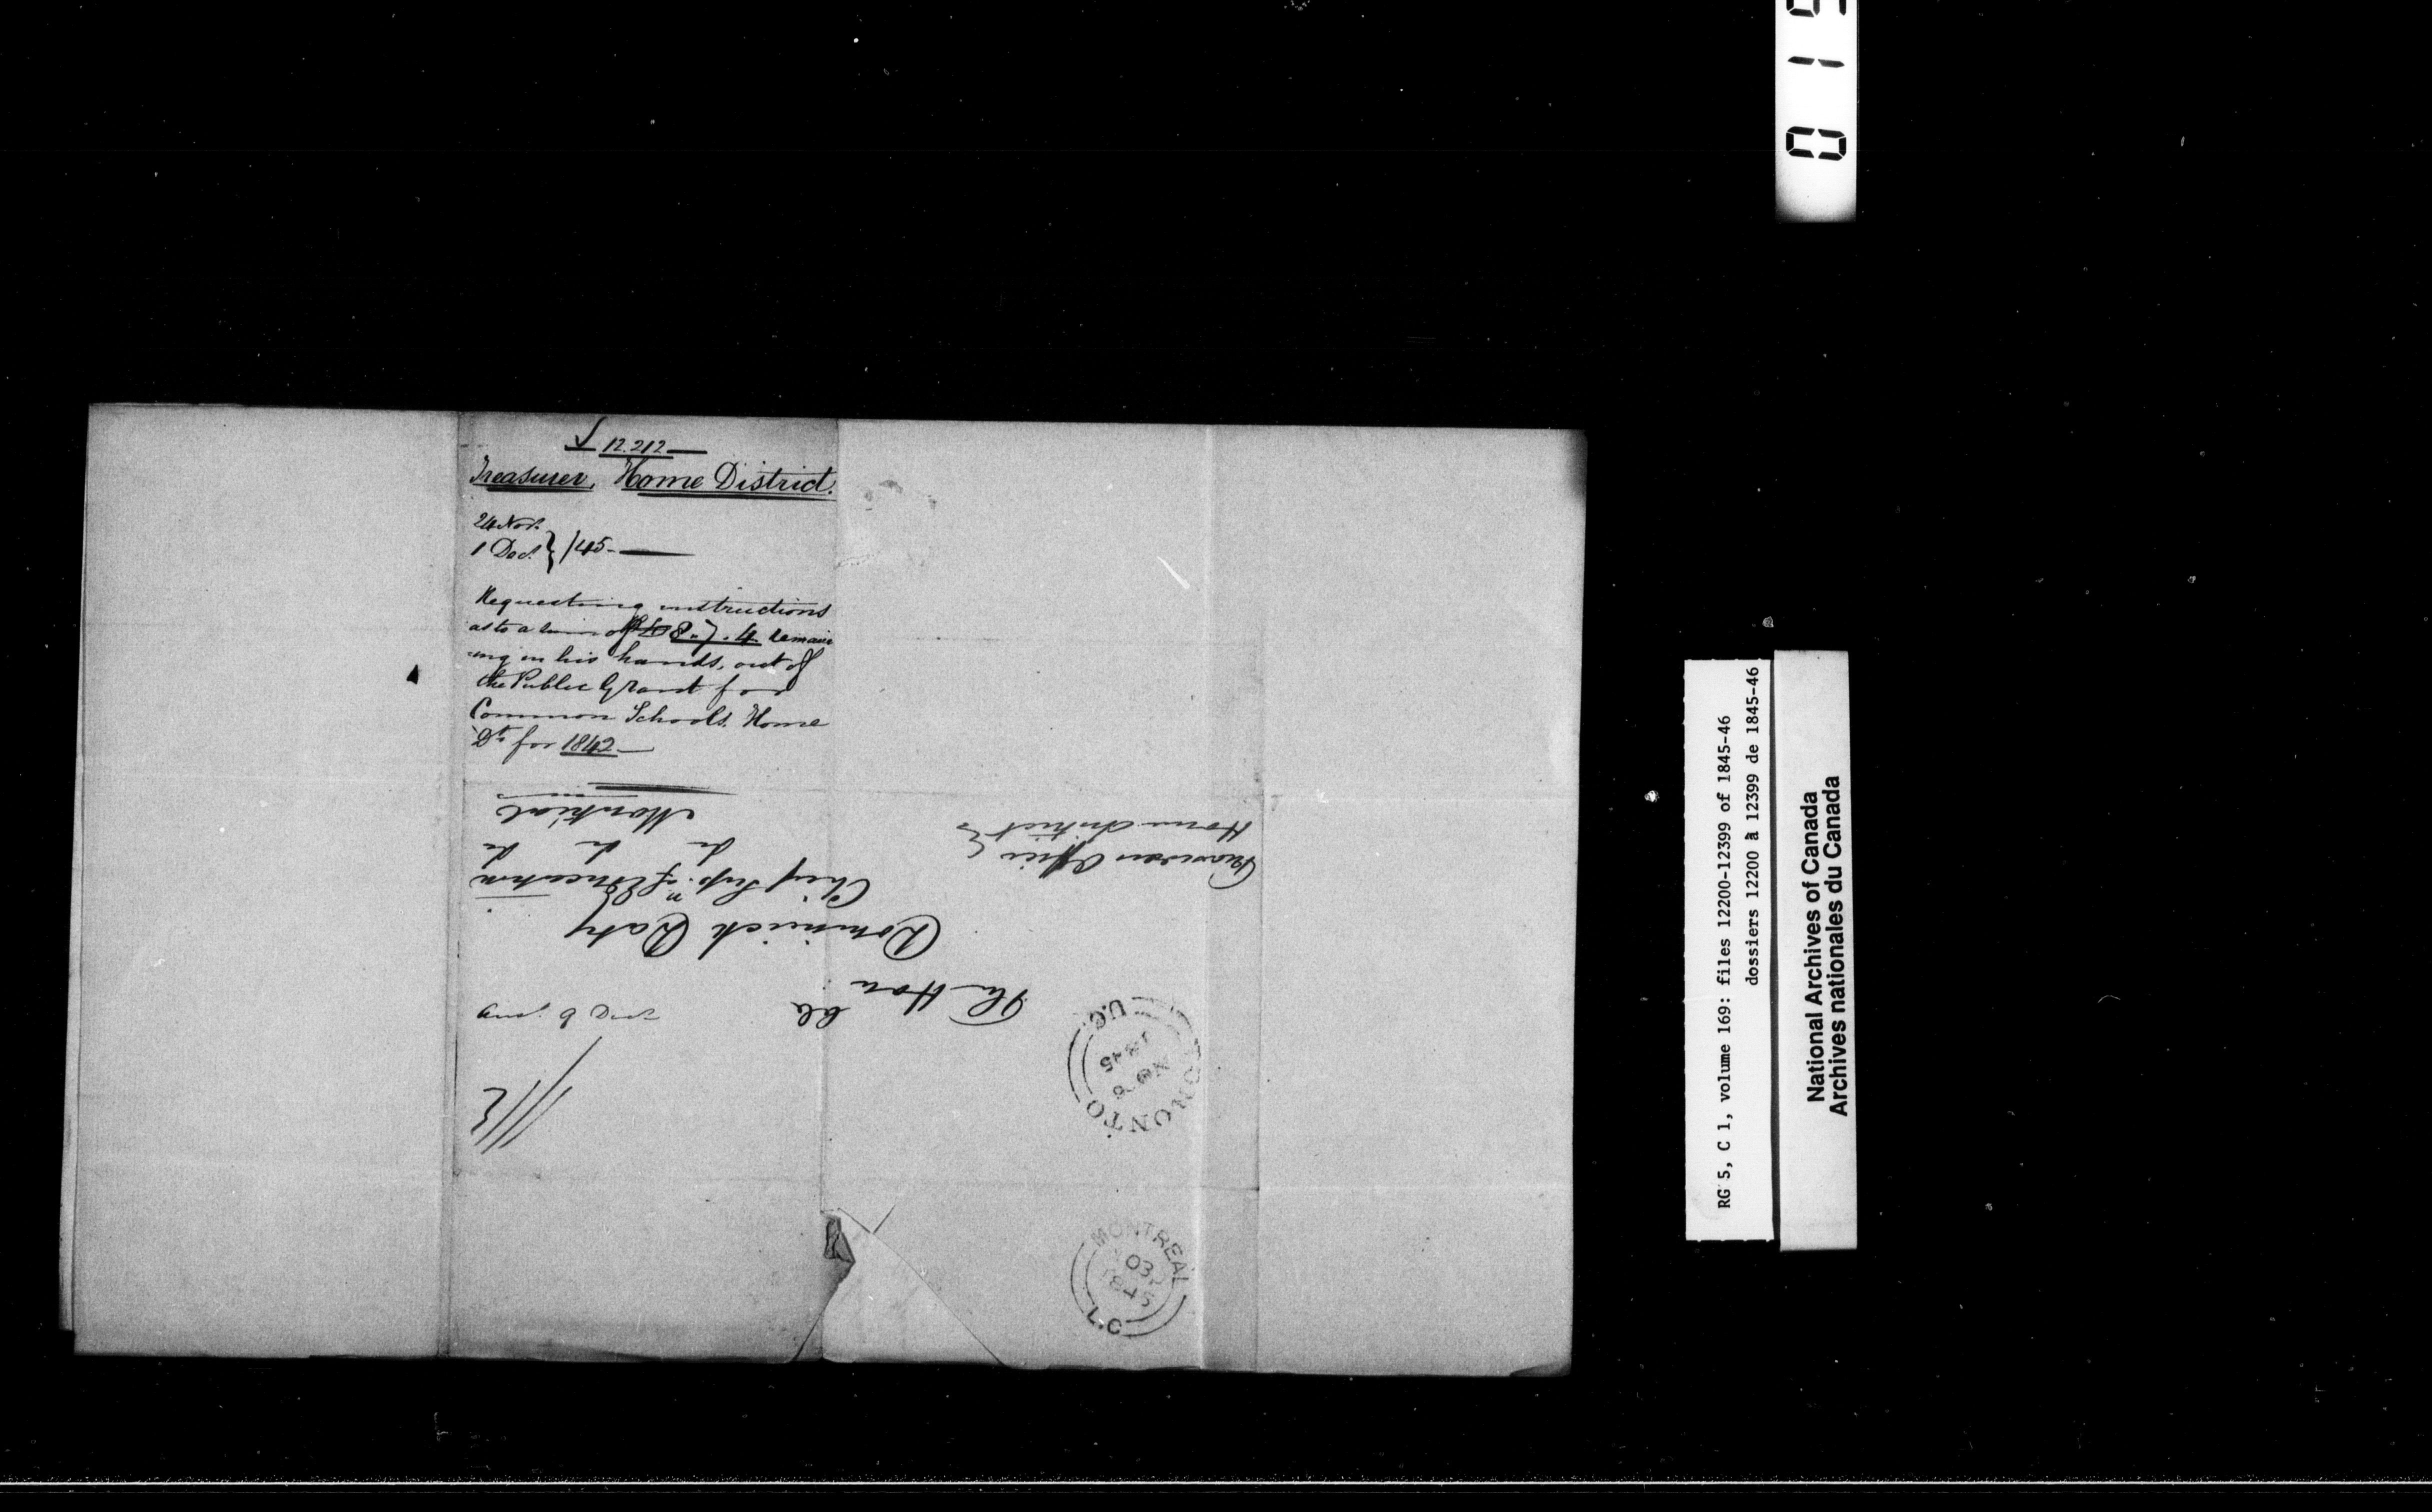 12.212
Treasurer, Home District.
24 Nov.
1 Dec. } /45-
Requesting instructions
as to a sum of £8.7.4 remain
-ing in his hands, out of
the Public Grant for
Common Schools. Home
Dt. for 1842
The Hon ble
Dominick Daly
Chief Sup. of Education
Montreal
Treasurers Office
Home District
TORONTO
U.C.
1845
MONTREAL
L.C
National Archives of Canada
Archives nationales du Canada
RG 5, C 1, volume 169: files 12200-12399 of 1845-46
dossiers 12200 à 12399 de 1845-46